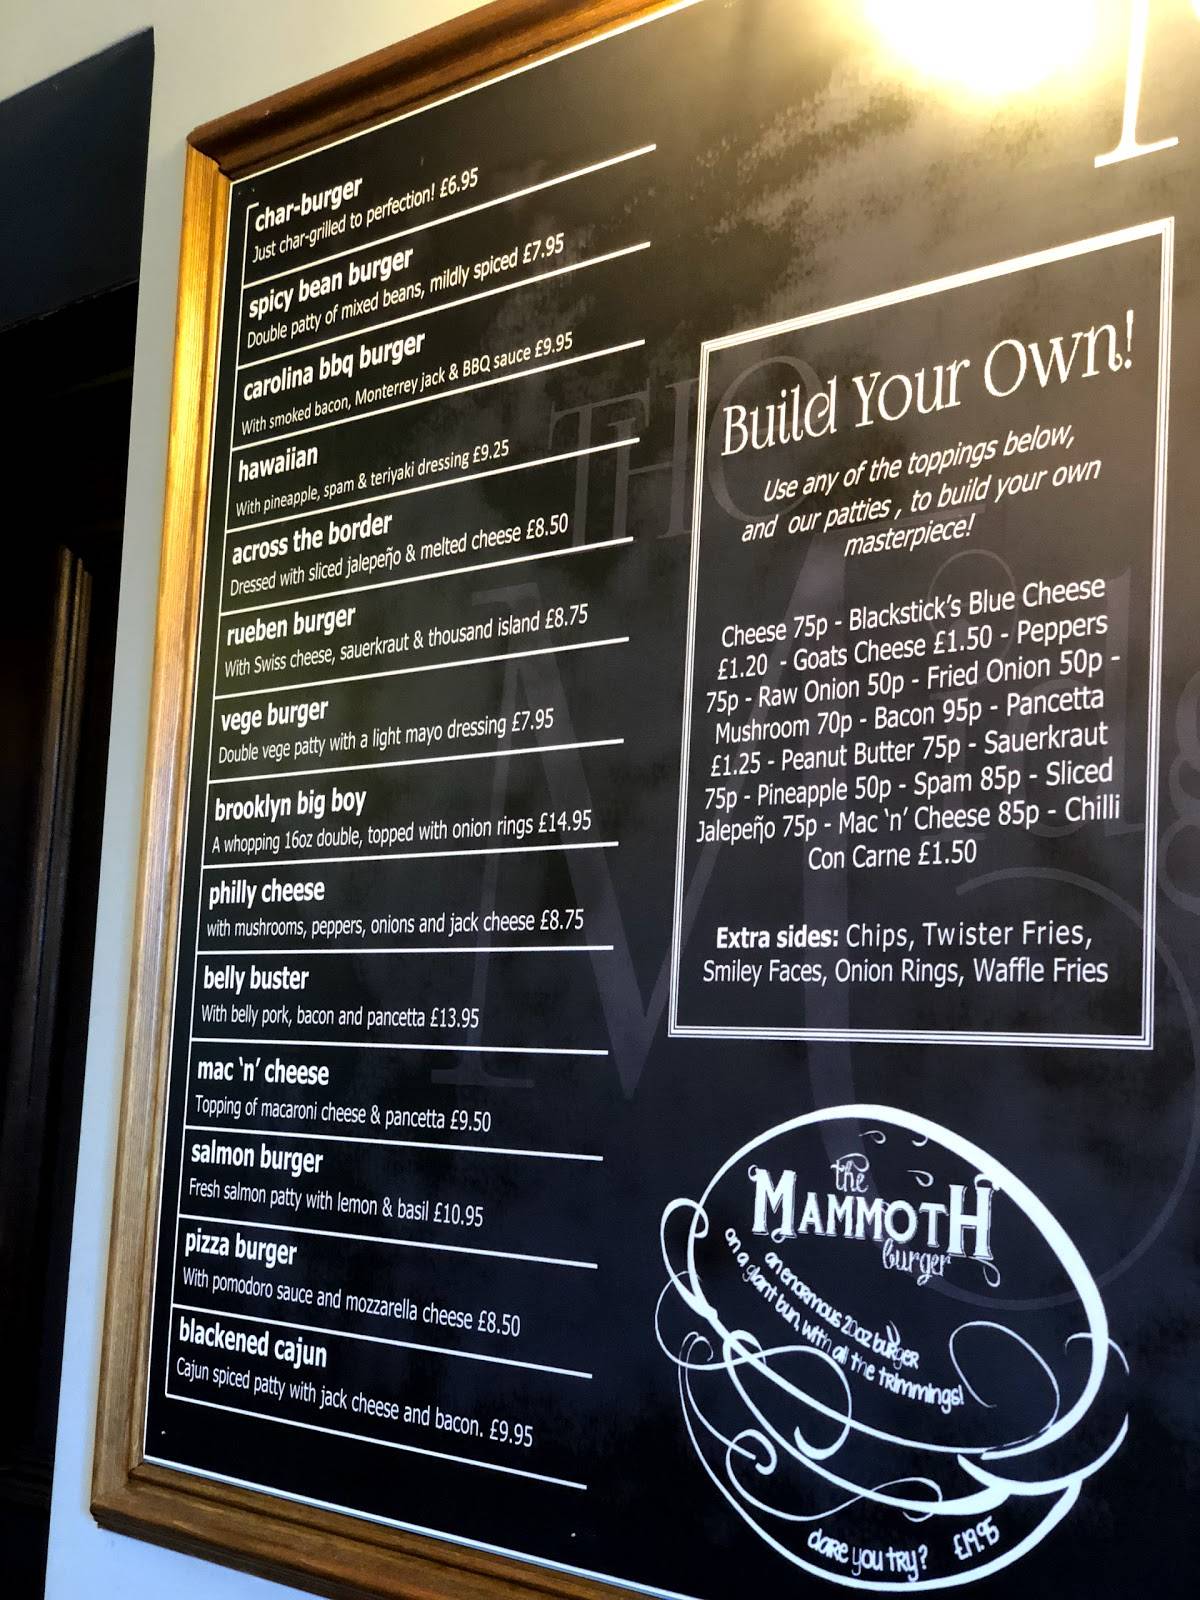 char-burger
Just char-grilled to perfection! £6.95
spicy bean burger
Double patty of mixed beans, mildly spiced £7.95
carolina bbq burger
With smoked bacon, Monterrey jack & BBQ sauce £9.95
hawaiian
With pineapple, spam & teriyaki dressing £9.25
across the border
Dressed with sliced jalepeño & melted cheese £8.50
rueben burger
With Swiss cheese, sauerkraut & thousand island £8.75
vege burger
Double vege patty with a light mayo dressing £7.95
brooklyn big boy
A whopping 16oz double, topped with onion rings £14.95
philly cheese
with mushrooms, peppers, onions and jack cheese £8.75
belly buster
With belly pork, bacon and pancetta £13.95
mac ‘n’ cheese
Topping of macaroni cheese & pancetta £9.50
salmon burger
Fresh salmon patty with lemon & basil £10.95
pizza burger
With pomodoro sauce and mozzarella cheese £8.50
blackened cajun
Cajun spiced patty with jack cheese and bacon. £9.95
Build Your Own!
Use any of the toppings below,
and our patties , to build your own
masterpiece!
Cheese 75p - Blackstick’s Blue Cheese
£1.20 - Goats Cheese £1.50 - Peppers
75p - Raw Onion 50p - Fried Onion 50p -
Mushroom 70p - Bacon 95p - Pancetta
£1.25 - Peanut Butter 75p - Sauerkraut
75p - Pineapple 50p - Spam 85p - Sliced
Jalepeño 75p - Mac ‘n’ Cheese 85p - Chilli
Con Carne £1.50
Extra sides: Chips, Twister Fries,
Smiley Faces, Onion Rings, Waffle Fries
the
MAMMOTH
burger
an enormous 20oz burger
on a giant bun, with all the trimmings!
dare you try? £19.95